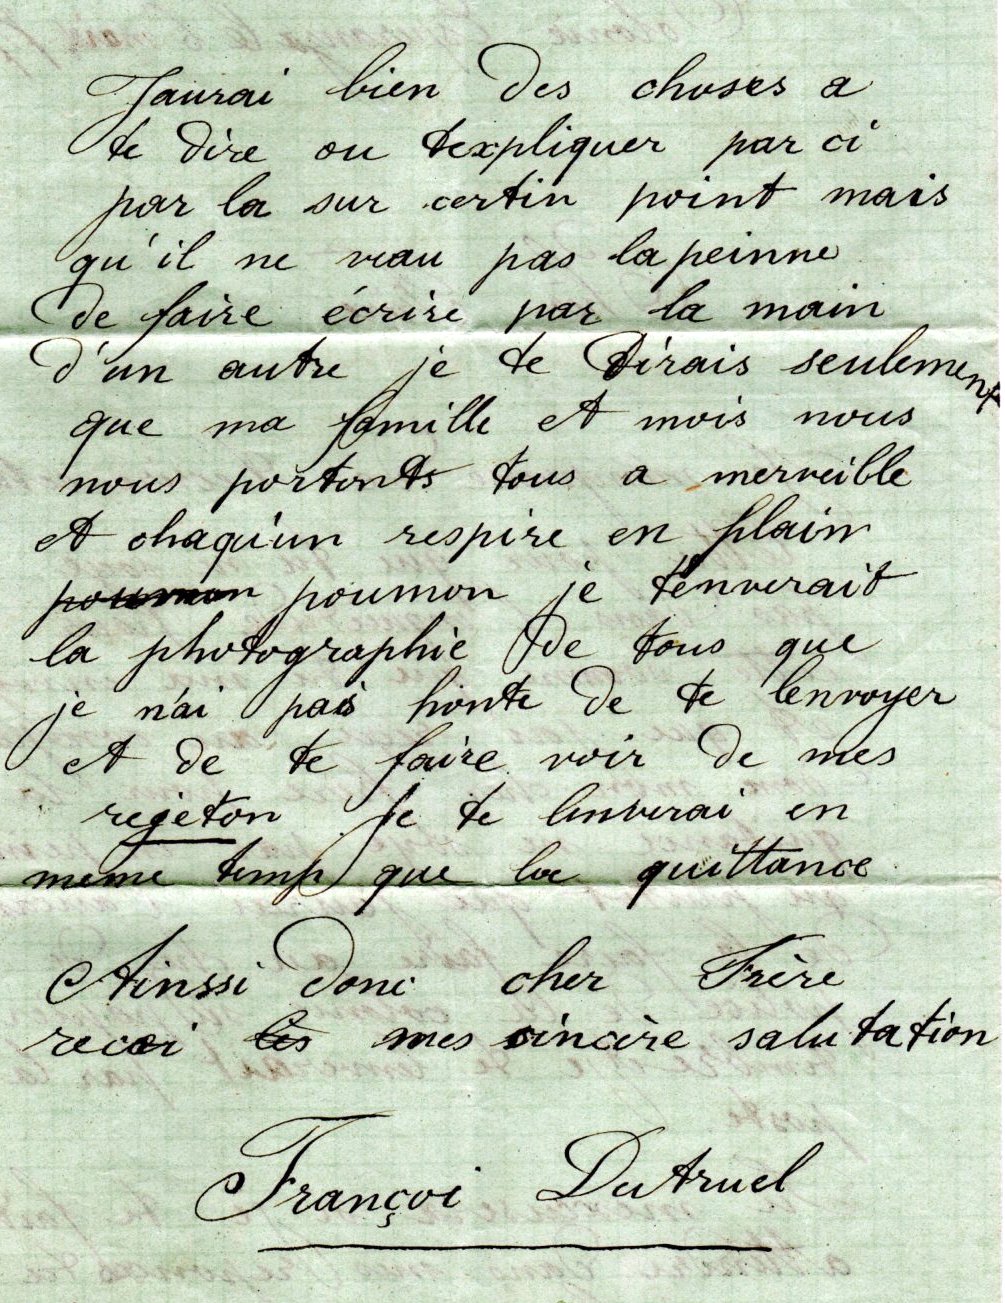 Jaurai bien des choses a
te dire ou texpliquer par ci
par la sur certin point mais
qu'il ne veau pas la peinne
de faire écrire par la main
d'un autre je te dirais seulement
que ma famille et mois nous
nous portonts tous a merveible
et chaqu'un respire en plain
poumon poumon je t'enverait
la photographie de tous que
je n'ai pas honte de te lenvoyer
et de te faire voir de mes
rejeton Je te lenverai en
meme temp que la quittance
Ainssi donc cher Frère
recoi les mes sincère salutation
Françoi Dutruel